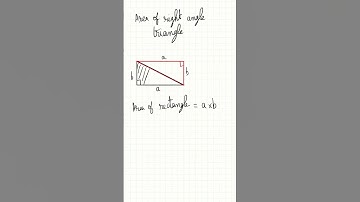 Area of right angle
triangle
a
b
b
a
Area of rectangle = a x b